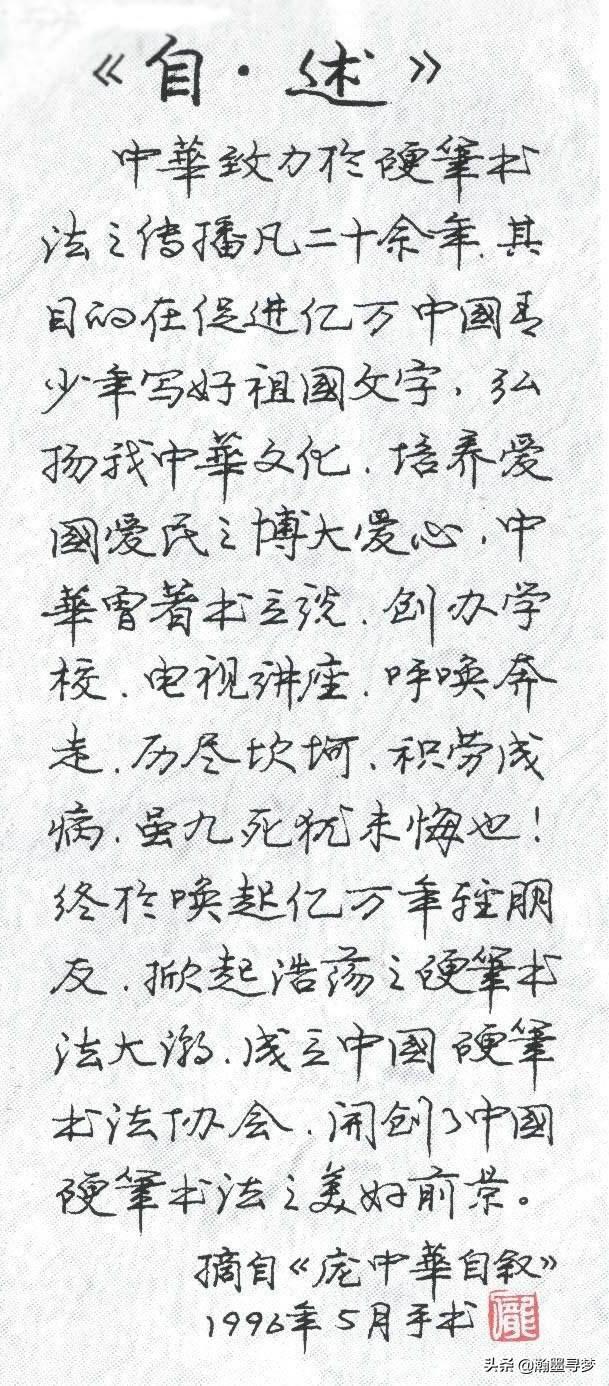 《自·述》
中華致力於硬筆书
法之传播凡二十余年、其
目的在促进亿万中國青
少年写好祖國文字，弘
扬我中華文化．培养爱
國爱民之博大爱心，中
華曾著书立说．创办学
校．电视讲座．呼唤奔
走．历尽坎坷．积劳成
病．虽九死犹未悔也！
终於唤起亿万年轻朋
友．掀起浩荡之硬筆书
法大潮．成立中國硬筆
书法协会．开创了中國
硬筆书法之美好前景。
摘自《庞中華自叙》
1996年5月手书
龐
头条@瀚墨寻梦